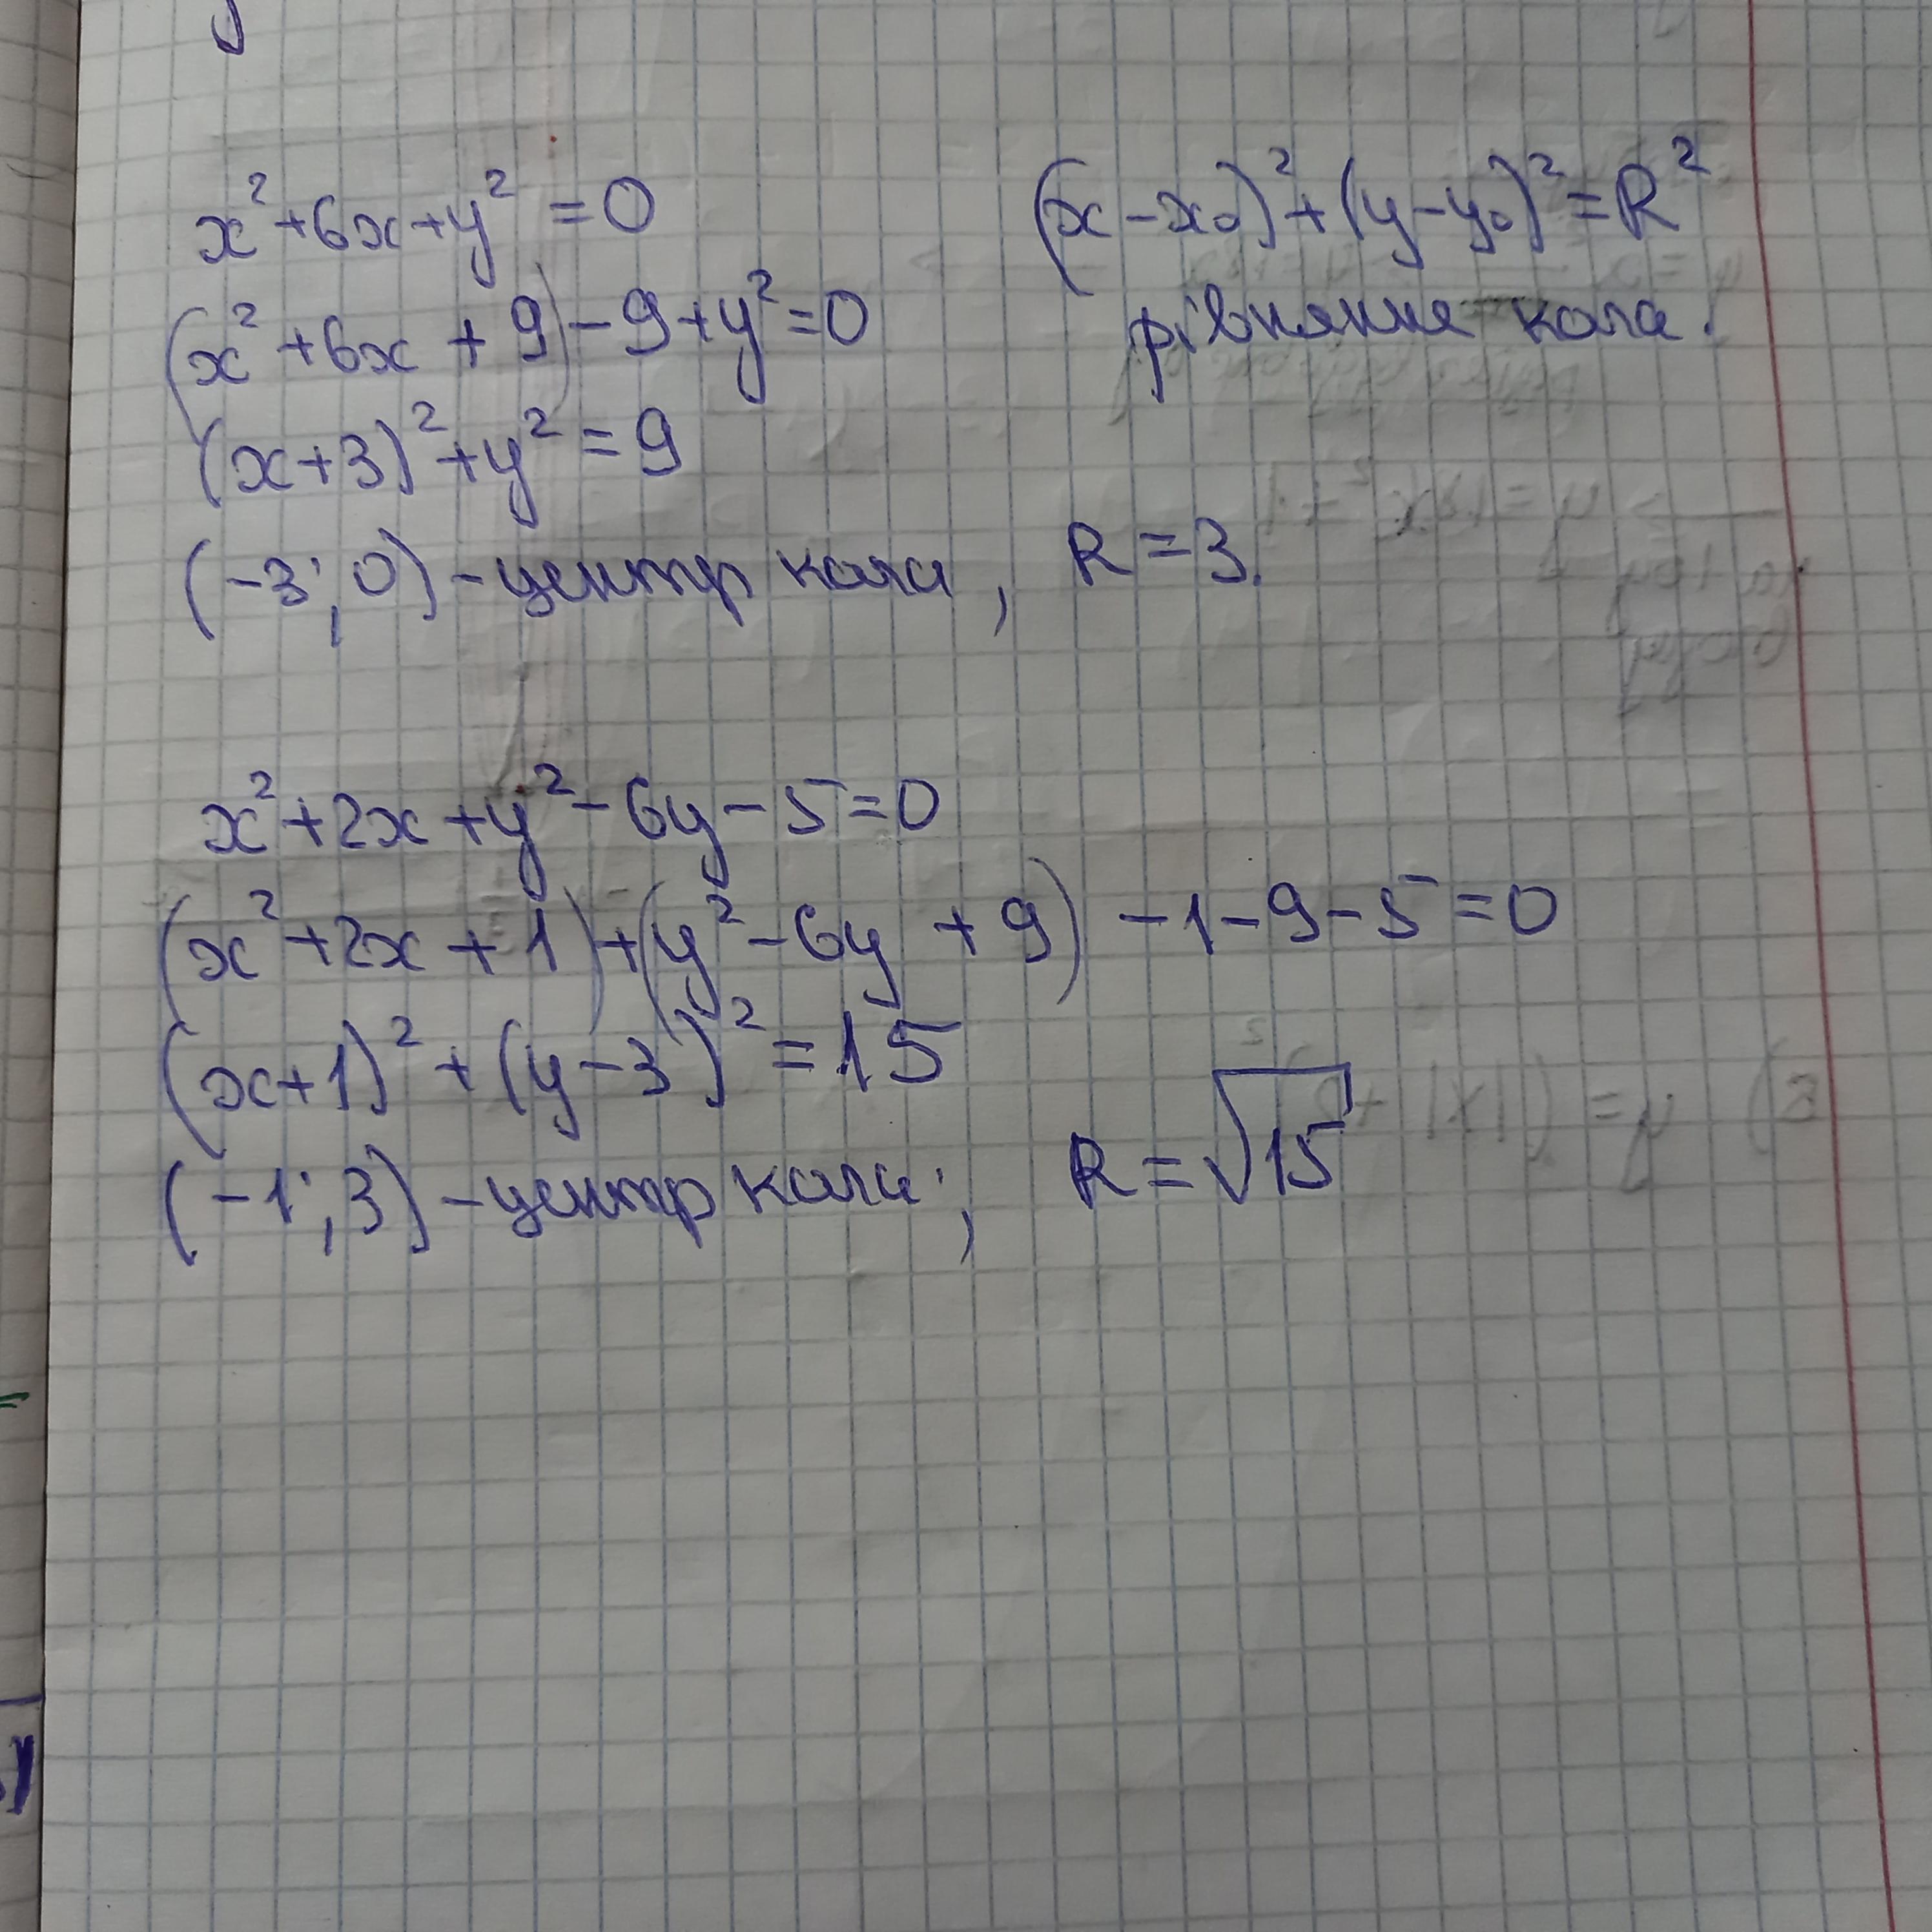 x² + 6x + y² = 0
(x - x₀)² + (y - y₀)² = R²
(x² + 6x + 9) - 9 + y² = 0
рівняння кола.
(x + 3)² + y² = 9
(-3; 0) - центр кола, R = 3.
x² + 2x + y² - 6y - 5 = 0
(x² + 2x + 1) + (y² - 6y + 9) - 1 - 9 - 5 = 0
(x + 1)² + (y - 3)² = 15
(-1; 3) - центр кола; R = √15